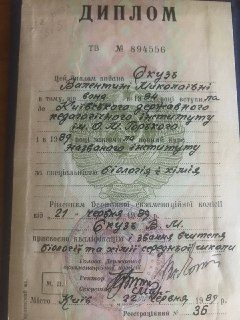 ДИПЛОМ
ТВ № 894556
Цей диплом видано Скузь
Валентині Миколаївні
в тому, що вона в 19 вступила до
Київського державного
педагогічного інституту
ім. О. М. Горького
і в 1989 році закінчила повний курс
названого інституту
за спеціальністю
біологія і хімія
Рішенням Державної екзаменаційної комісії
від 21 червня 1989
Скузь В. М.
присвоєно кваліфікацію і звання вчителя
біології та хімії середньої школи
Голова Державної
екзаменаційної комісії
Ректор
Секретар
Місто Київ 22 червня 1989 р.
Реєстраційний № 36